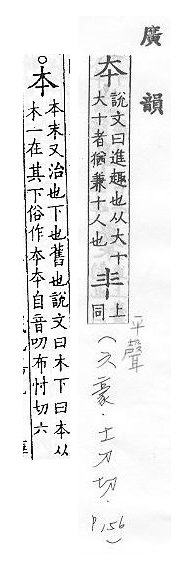 廣韻
夲 說文曰進趣也从大十
大十者猶兼十人也
𠦂 上
同
平聲
(六豪.土刀切.
P.156)
○本 本末又治也下也舊也說文曰木下曰本从
木一在其下俗作夲夲自音叨布忖切六